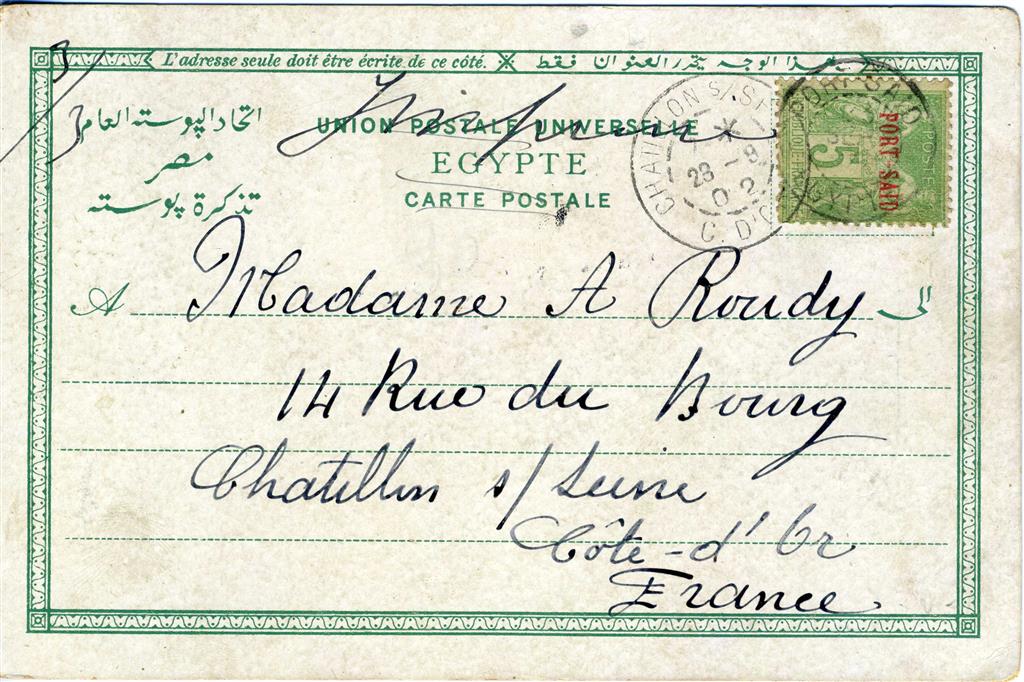 L'adresse seule doit être écrite de ce côté. هذا الوجه يتحرر العنوان فقط
اتحاد البوسته العام
مصر
تذكرة بوسته
UNION POSTALE UNIVERSELLE
EGYPTE
CARTE POSTALE
CHATILLON S/SEINE
28 -9
02
C D'OR
PORT-SAID
5
PORT-SAID
A Madame A Roudy الى
14 Rue du Bourg
Chatillon s/ Seine
Côte-d'Or
France